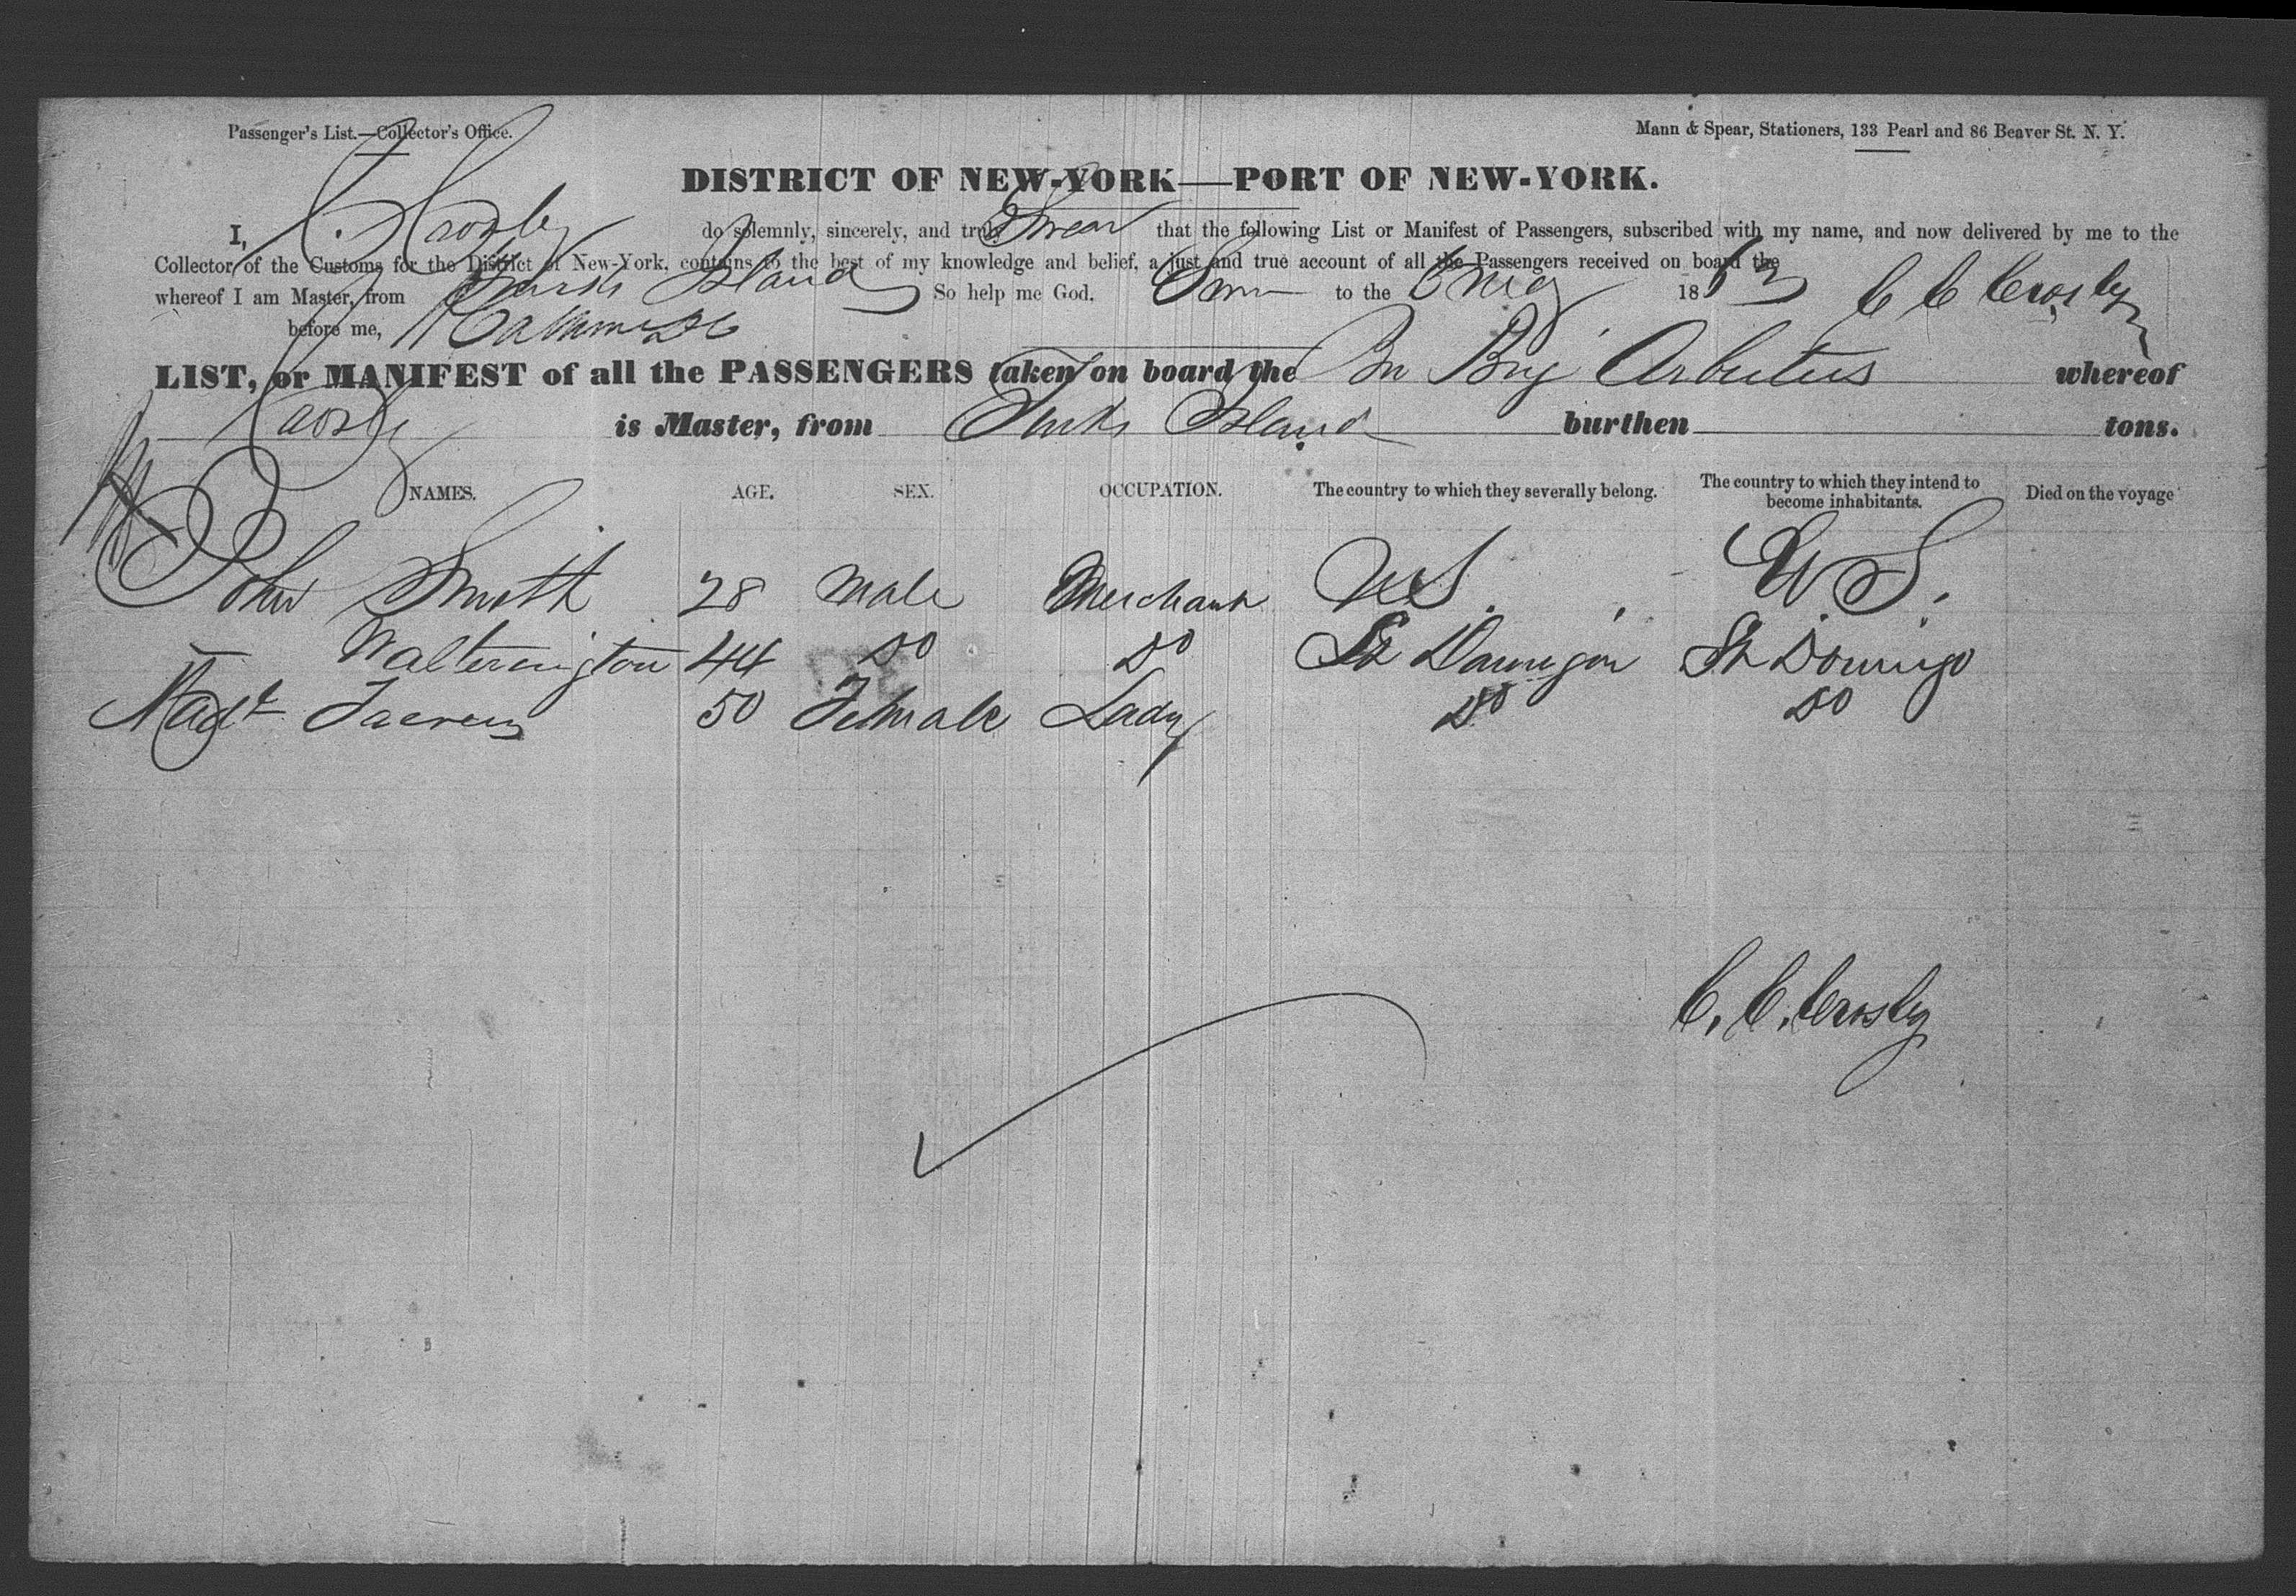 Passenger's List.—Collector's Office.
Mann & Spear, Stationers, 133 Pearl and 86 Beaver St. N. Y.
DISTRICT OF NEW-YORK—PORT OF NEW-YORK.
I, C. Crosby do solemnly, sincerely, and truly Swear that the following List or Manifest of Passengers, subscribed with my name, and now delivered by me to the
Collector of the Customs for the District of New-York, contains to the best of my knowledge and belief, a just and true account of all the Passengers received on board the
whereof I am Master, from Turks Island So help me God. Sworn to the 186 C C Crosby
before me,
LIST, or MANIFEST of all the PASSENGERS taken on board the Br Brig Arbutus whereof
Crosby is Master, from Turks Island burthen tons.
NAMES. AGE. SEX. OCCUPATION. The country to which they severally belong. The country to which they intend to become inhabitants. Died on the voyage
John Smith 28 Male Merchant U.S. U.S.
44 Do Do St Domingo St Domingo
50 Female Lady Do Do
C. C. Crosby